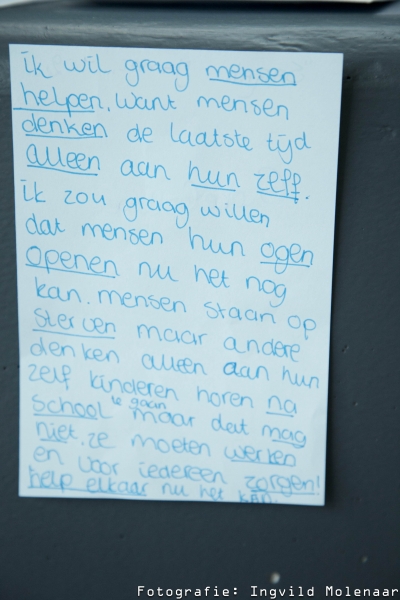 ik wil graag mensen
helpen. want mensen
denken de laatste tijd
alleen aan hun zelf.
ik zou graag willen
dat mensen hun ogen
openen nu het nog
kan. mensen staan op
sterven maar andere
denken alleen aan hun
zelf kinderen horen na
school te gaan maar dat mag
niet. ze moeten werken
en voor iedereen zorgen!
help elkaar nu het kan.
Fotografie: Ingvild Molenaar